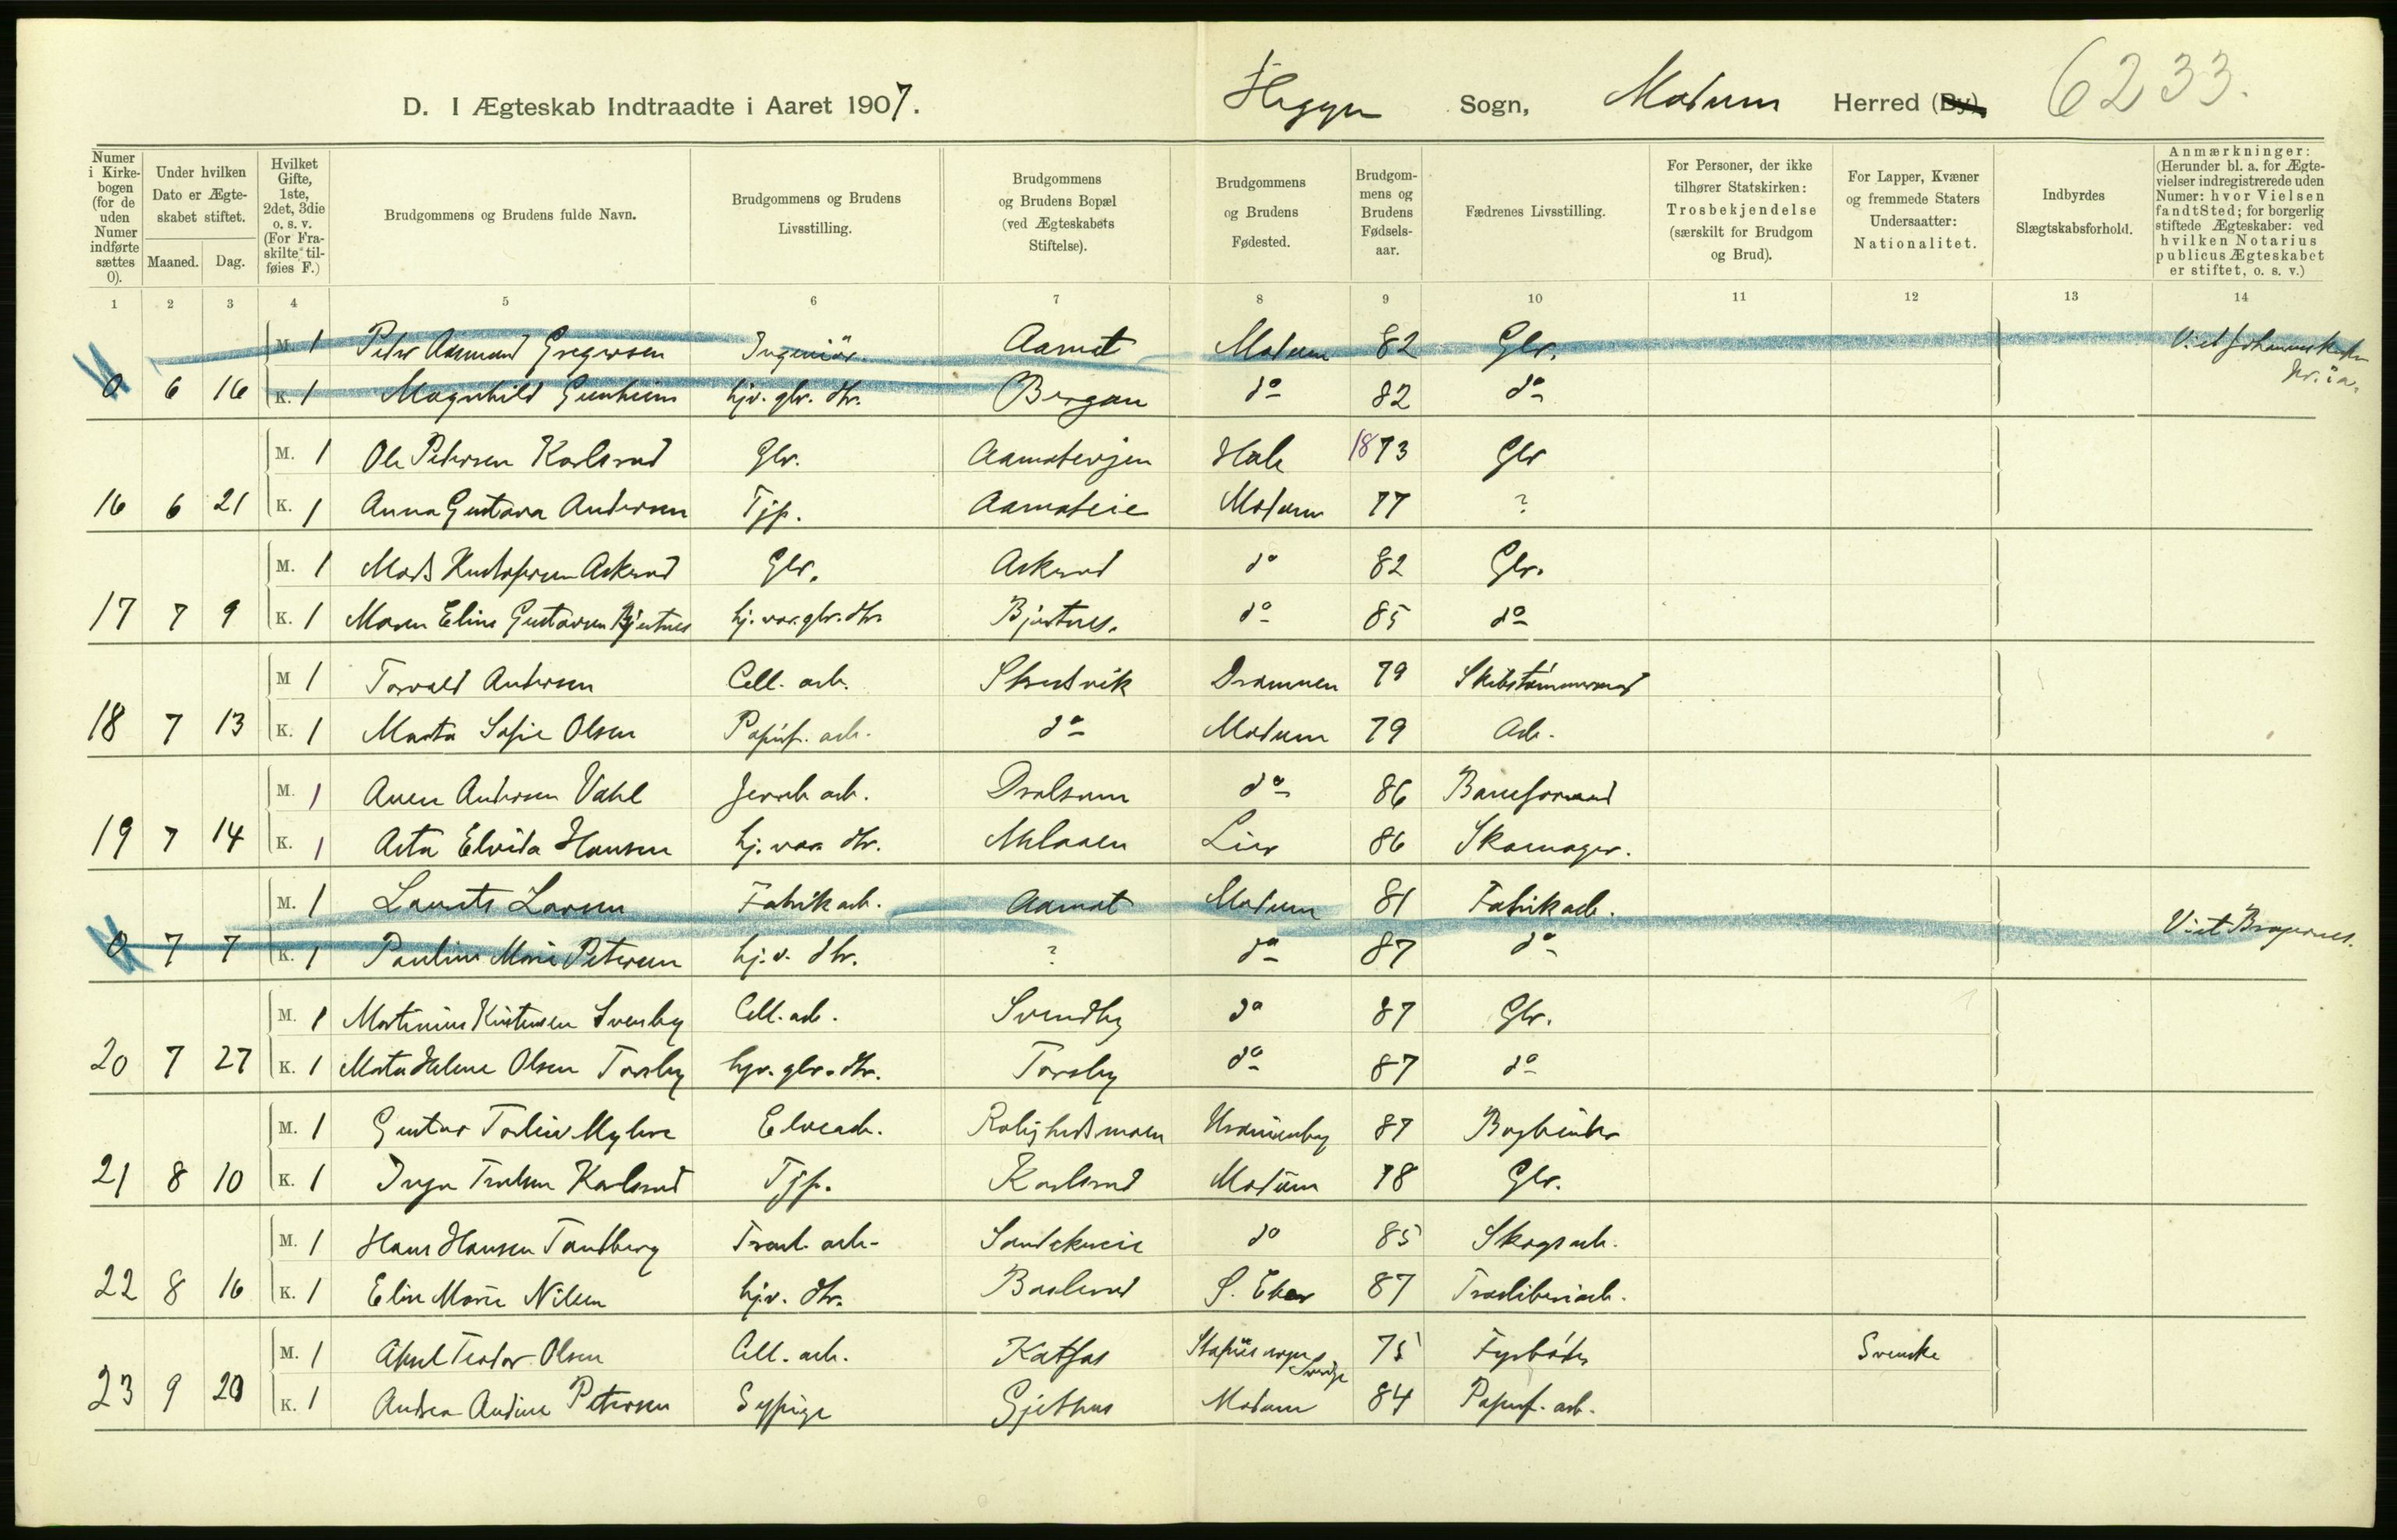 D. I Ægteskab Indtraadte i Aaret 1907.
Heggen Sogn, Modum Herred (By). 6233.
Numer i Kirkebogen (for de uden Numer indførte sættes 0).
Under hvilken Dato er Ægteskabet stiftet.
Maaned. Dag.
Hvilket Gifte, 1ste, 2det, 3die o. s. v. (For Fraskilte tilføies F.)
Brudgommens og Brudens fulde Navn.
Brudgommens og Brudens Livsstilling.
Brudgommens og Brudens Bopæl (ved Ægteskabets Stiftelse).
Brudgommens og Brudens Fødested.
Brudgommens og Brudens Fødselsaar.
Fædrenes Livsstilling.
For Personer, der ikke tilhører Statskirken: Trosbekjendelse (særskilt for Brudgom og Brud).
For Lapper, Kvæner og fremmede Staters Undersaatter: Nationalitet.
Indbyrdes Slægtskabsforhold.
Anmærkninger: (Herunder bl. a. for Ægtevielser indregistrerede uden Numer: hvor Vielsen fandt Sted; for borgerlig stiftede Ægteskaber: ved hvilken Notarius publicus Ægteskabet er stiftet, o. s. v.)
1 2 3 4 5 6 7 8 9 10 11 12 13 14
M. 1 Peder Gregersen Ingeniör Aamot Modum 82 Glr. Viet Johanneskirken Kr.ia.
0 6 16 K. 1 Magnhild hjv. glr. dtr. Bergan do 82 do
M. 1 Ole Petersen Karlsrud Glr. Aamoteien Hole 1873 Glr
16 6 21 K. 1 Anna Gustava Andersen Tjp. Aamoteie Modum 77 ?
M. 1 Mads Kristofersen Askerud Glr. Askerud do 82 Glr.
17 7 9 K. 1 Maren Eline Gustavsen Bjertnes hj. vær. glr. dtr. Bjertnes. do 85 do
M 1 Torvald Andersen Cell. arb. Skredsvik Drammen 79 Skibstømmermand
18 7 13 K. 1 Marta Sofie Olsen Papirf. arb. do Modum 79 Arb.
M. 1 Andersen Jernb. arb. Drolsum do 86 Baneformand
19 7 14 K. 1 Asta Elvida Hansen hj. vær. dtr. Lier 86 Skomager.
M. 1 Laurits Larsen Fabrikarb. Aamot Modum 81 Fabrikarb.
0 7 7 K. 1 Pauline Marie Petersen hj. v. dtr. ? do 87 do Viet Bragernes.
M. 1 Martinius Kristensen Svenby Cell. arb. Svendby do 87 Glr.
20 7 27 K. 1 Marta Helene Olsen Torsby hjv. glr. dtr. Torsby do 87 do
M. 1 Gustav Torleiv Myhre Elvearb. Rolighedsmoen Uranienborg 87 Bogbinder
21 8 10 K. 1 Inga Trulsen Karlsrud Tjp. Karlsrud Modum 78 Glr.
M. 1 Hans Hansen Tandberg Træsl. arb. do 85 Skogsarb.
22 8 16 K. 1 Eline Marie Nilsen hjv. dtr. Baslerud S. Eker 87 Træsliberiarb.
M. 1 Aksel Teodor Olsen Cell. arb. Katfos Sverige 75 Fyrbøder Svenske
23 9 20 K. 1 Andrea Andine Petersen Sypige Gjethus Modum 84 Papirf. arb.